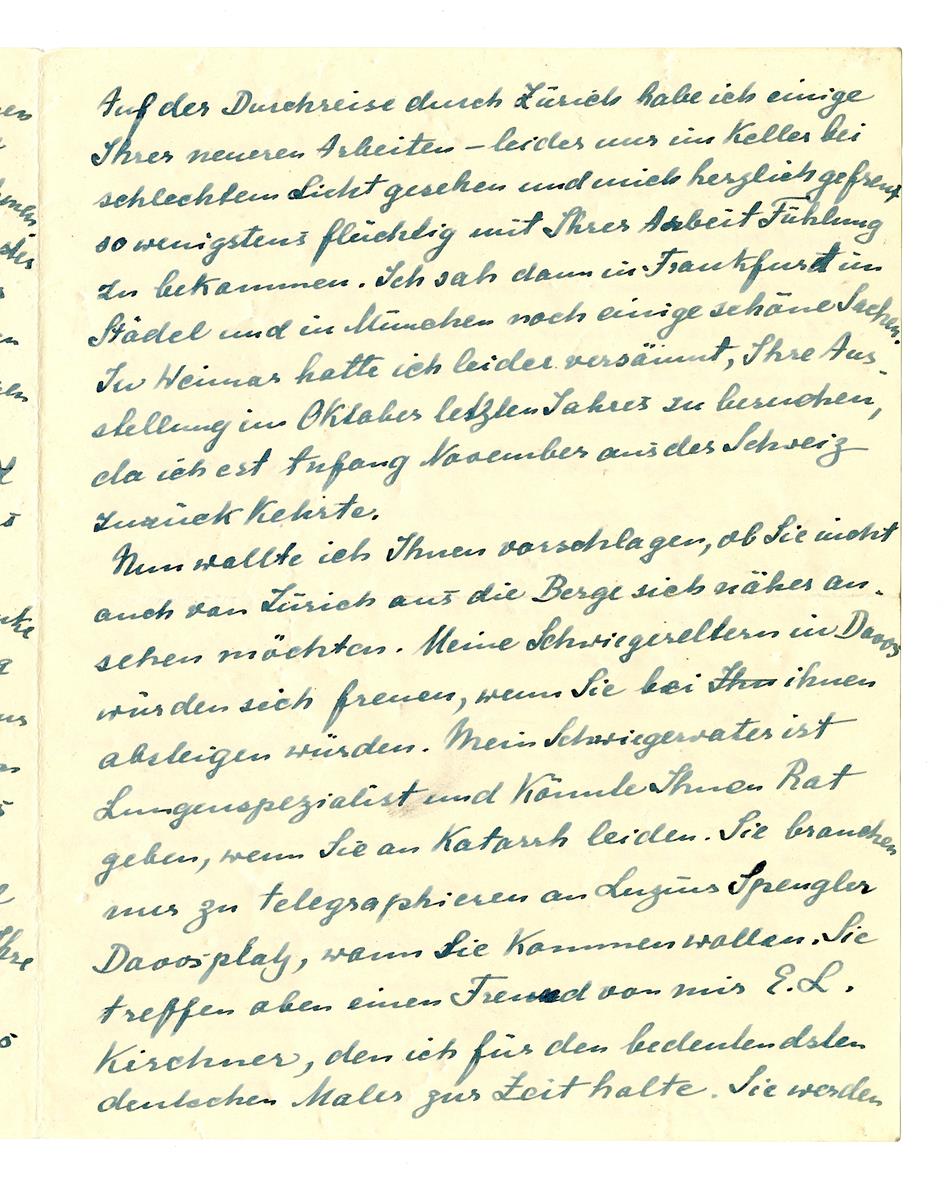 Auf der Durchreise durch Zürich habe ich einige
Ihrer neueren Arbeiten – leider nur im Keller bei
schlechtem Licht gesehen und mich herzlich gefreut
so wenigstens flüchtig mit Ihrer Arbeit Fühlung
zu bekommen. Ich sah dann in Frankfurt im
Städel und in München noch einige schöne Sachen.
In Weimar hatte ich leider versäumt, Ihre Aus-
stellung im Oktober letzten Jahres zu besuchen,
da ich erst Anfang November aus der Schweiz
zurück kehrte.
Nun wollte ich Ihnen vorschlagen, ob Sie nicht
auch von Zürich aus die Berge sich näher an-
sehen möchten. Meine Schwiegereltern in Davos
würden sich freuen, wenn Sie bei Ihn ihnen
absteigen würden. Mein Schwiegervater ist
Lungenspezialist und könnte Ihnen Rat
geben, wenn Sie an Katarrh leiden. Sie brauchen
nur zu telegraphieren an Luzius Spengler
Davosplatz, wann Sie kommen wollen. Sie
treffen oben einen Freund von mir E. L.
Kirchner, den ich für den bedeutendsten
deutschen Maler zur Zeit halte. Sie werden